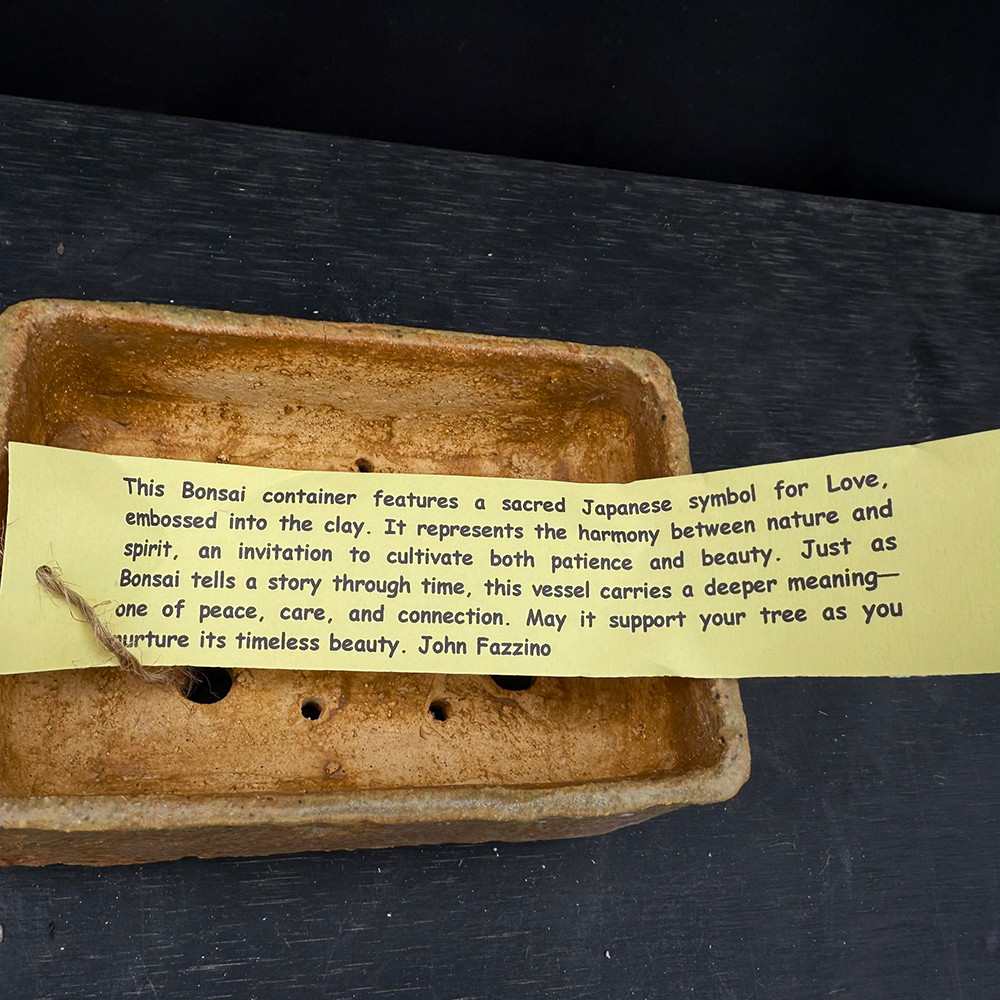 This Bonsai container features a sacred Japanese symbol for Love,
embossed into the clay. It represents the harmony between nature and
spirit, an invitation to cultivate both patience and beauty. Just as
Bonsai tells a story through time, this vessel carries a deeper meaning—
one of peace, care, and connection. May it support your tree as you
nurture its timeless beauty. John Fazzino